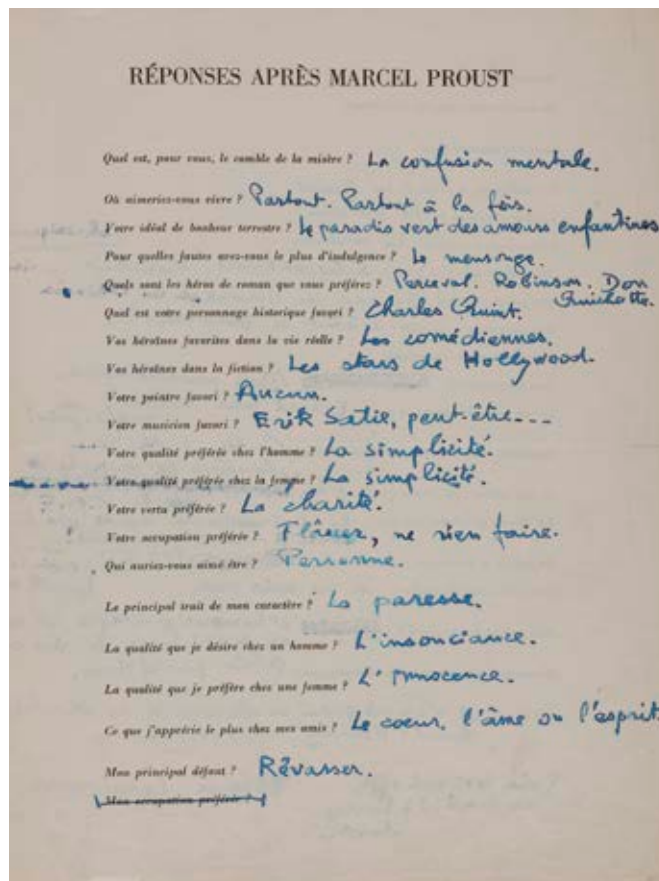 RÉPONSES APRÈS MARCEL PROUST
Quel est, pour vous, le comble de la misère ? La confusion mentale.
Où aimeriez-vous vivre ? Partout. Partout à la fois.
Votre idéal de bonheur terrestre ? Le paradis vert des amours enfantines
Pour quelles fautes avez-vous le plus d'indulgence ? Le mensonge.
Quels sont les héros de roman que vous préférez ? Perceval. Robinson. Don
Quichotte.
Quel est votre personnage historique favori ? Charles Quint.
Vos héroïnes favorites dans la vie réelle ? Les comédiennes.
Vos héroïnes dans la fiction ? Les stars de Hollywood.
Votre peintre favori ? Aucun.
Votre musicien favori ? Erik Satie, peut-être...
Votre qualité préférée chez l'homme ? La simplicité.
Votre qualité préférée chez la femme ? La simplicité.
Votre vertu préférée ? La charité.
Votre occupation préférée ? Flâner, ne rien faire.
Qui auriez-vous aimé être ? Personne.
Le principal trait de mon caractère ? La paresse.
La qualité que je désire chez un homme ? L'insouciance.
La qualité que je préfère chez une femme ? L'innocence.
Ce que j'apprécie le plus chez mes amis ? Le coeur, l'âme ou l'esprit
Mon principal défaut ? Rêvasser.
Mon occupation préférée ?